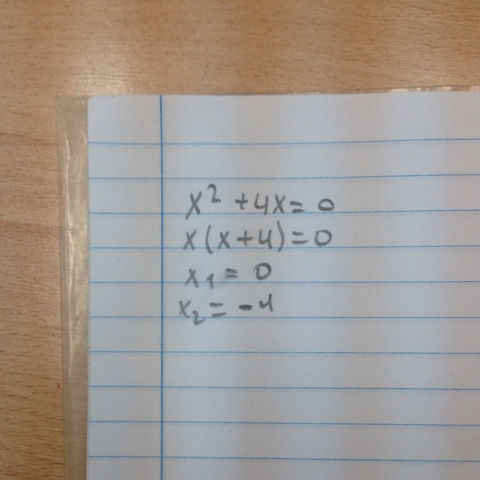 x² + 4x = 0
x(x+4) = 0
x₁ = 0
x₂ = -4